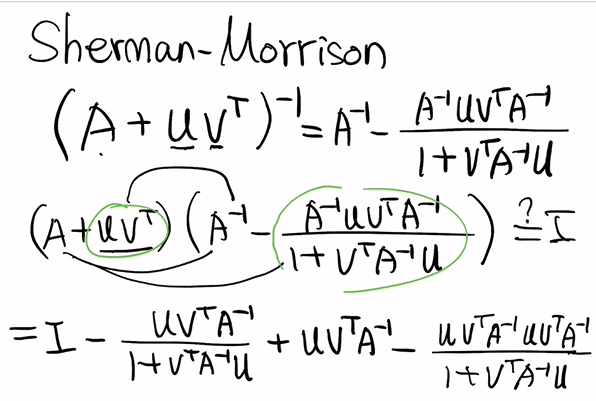 Sherman-Morrison
(A + uv^T)^-1 = A^-1 - A^-1uv^TA^-1 / 1 + v^TA^-1u
(A + uv^T) (A^-1 - A^-1uv^TA^-1 / 1 + v^TA^-1u) ?= I
= I - uv^TA^-1 / 1 + v^TA^-1u + uv^TA^-1 - uv^TA^-1uv^TA^-1 / 1 + v^TA^-1u